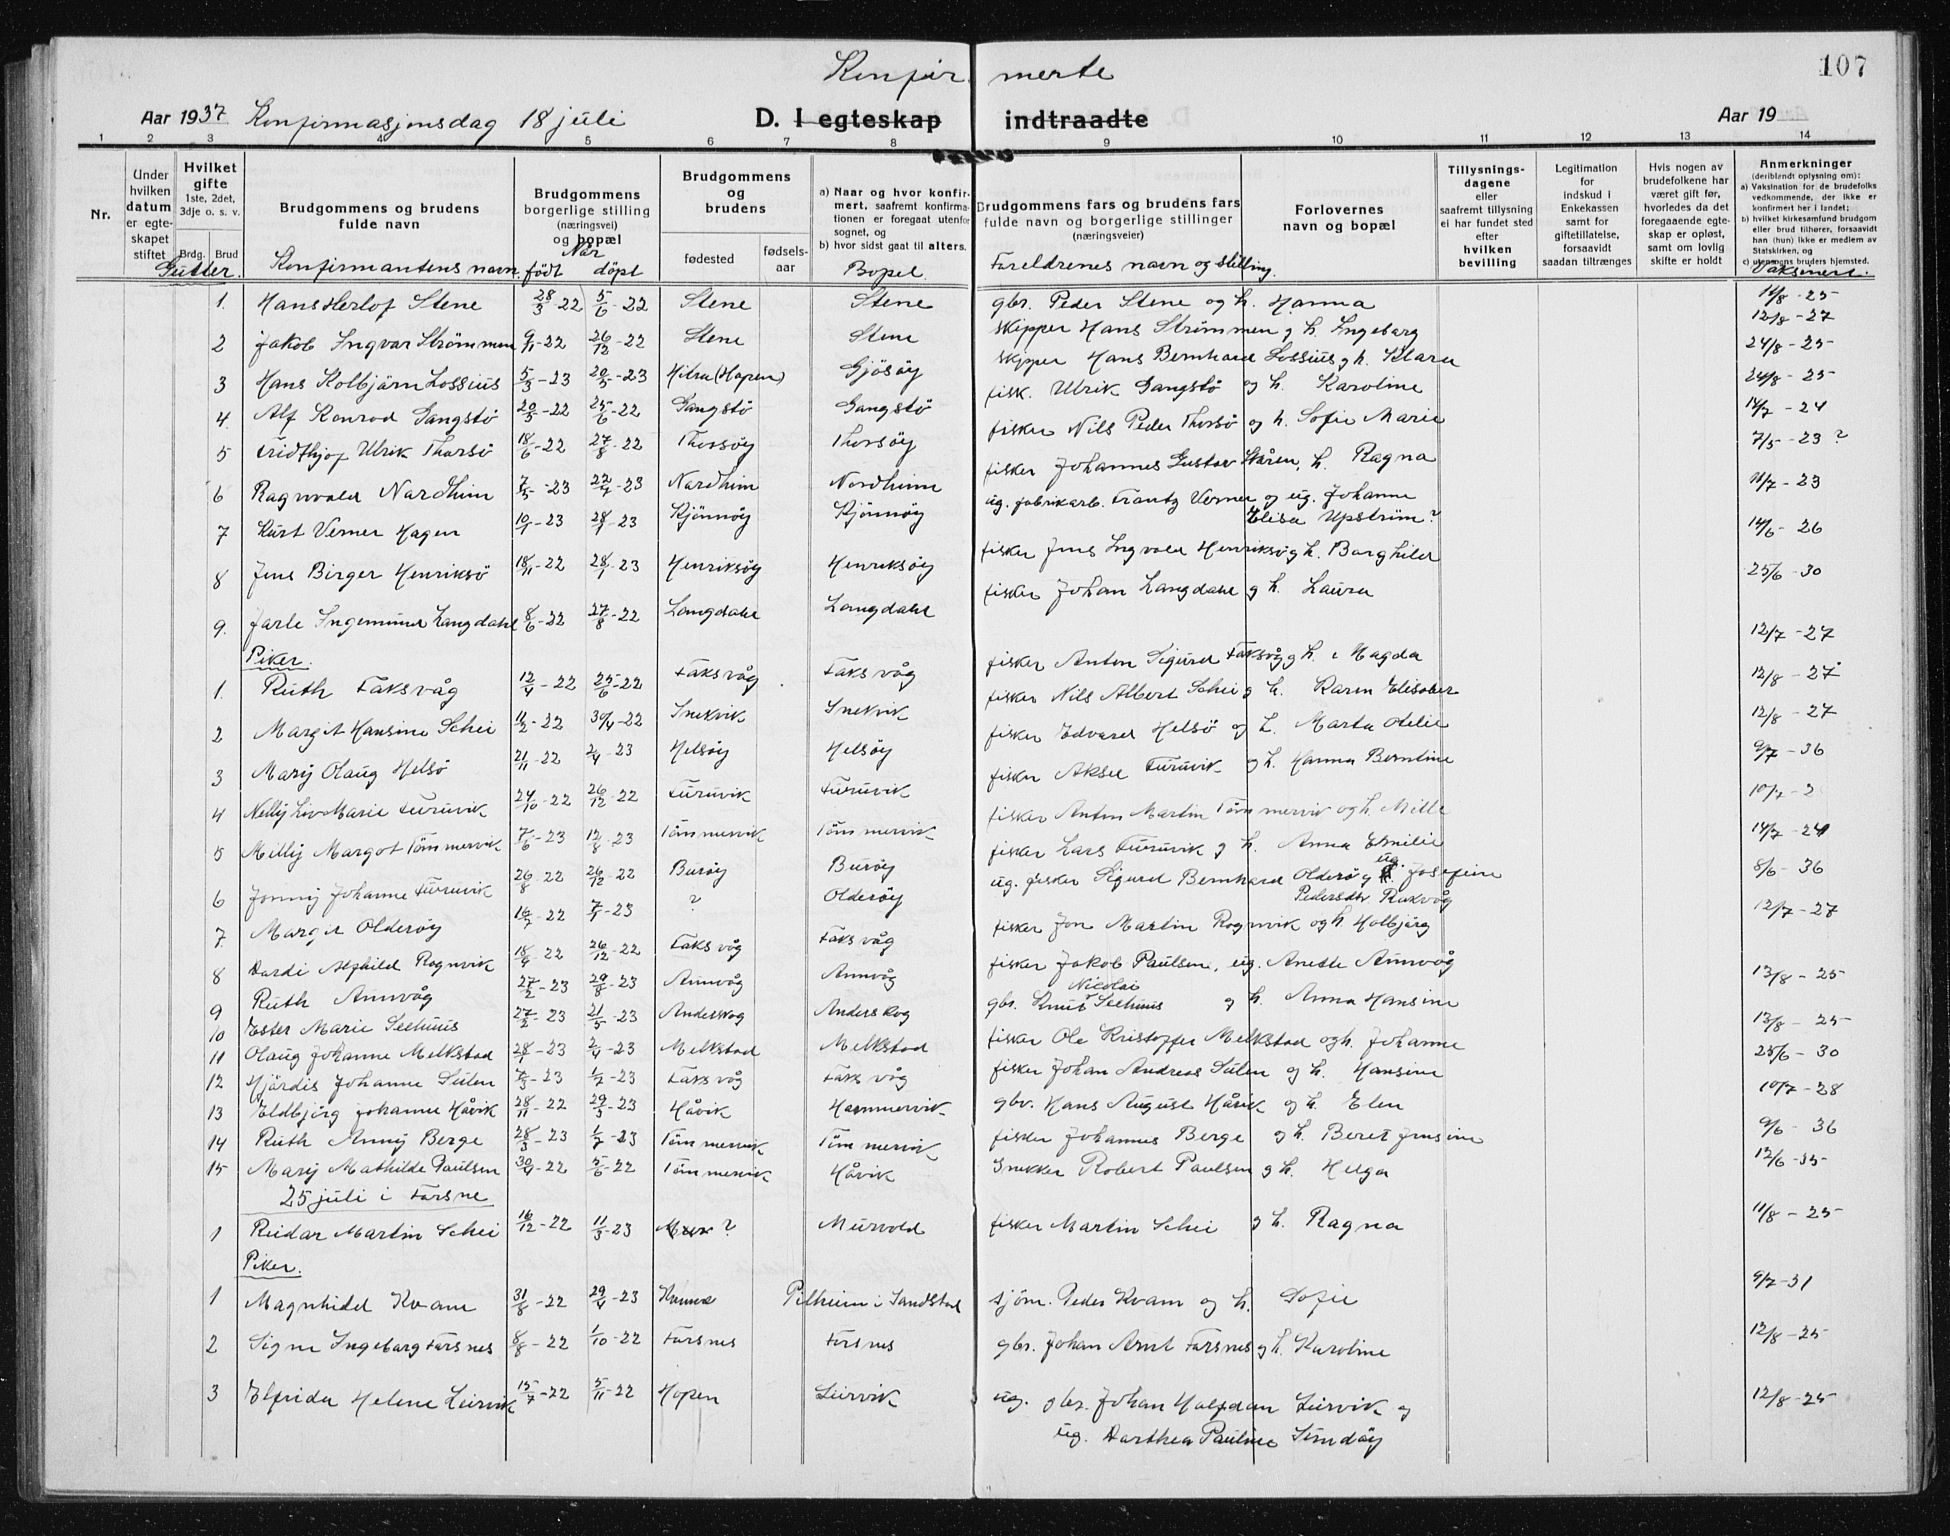 Konfirmerte
107
Aar 1937 Konfirmasjonsdag 18 juli D. I egteskap indtraadte Aar 19
1 2 3 4 5 6 7 8 9 10 11 12 13 14
Nr.
Under hvilken datum er egteskapet stiftet
Hvilket gifte 1ste, 2det, 3dje o. s. v. Brdg. Brud
Brudgommens og brudens fulde navn
Brudgommens borgerlige stilling (næringsvei) og bopæl
Brudgommens og brudens fødested fødsels-aar
a) Naar og hvor konfirmert, saafremt konfirmationen er foregaat utenfor sognet, og b) hvor sidst gaat til alters.
Brudgommens fars og brudens fars fulde navn og borgerlige stillinger (næringsveier)
Forlovernes navn og bopæl
Tillysningsdagene eller saafremt tillysning ei har fundet sted efter hvilken bevilling
Legitimation for indskud i Enkekassen samt for giftetillatelse, forsaavidt saadan tiltrænges
Hvis nogen av brudefolkene har været gift før, hvorledes da det foregaaende egteskap er opløst, samt om lovlig skifte er holdt
Anmerkninger (deriblandt oplysning om): a) Vaksination for de brudefolks vedkommende, der ikke er konfirmert her i landet; b) hvilket kirkesamfund brudgom eller brud tilhører, forsaavidt han (hun) ikke er medlem av Statskirken, og c) utenbygs bruders hjemsted.
Gutter. Konfirmantens navn Når født døpt Bopel Foreldrenes navn og stilling Vaksinert.
1. Hans Herlof Stene 28/3-22 5/6-22 Stene Stene gbr. Peder Stene og h. Hanna 14/8-25
2 Jakob Ingvar Strømmen 9/11-22 26/12-22 Stene Stene skipper Hans Strømmen og h. Ingeborg 12/8-27
3 Hans Kolbjörn Lossius 5/3-23 20/5-23 Hitra (Hopen) Gjösöy skipper Hans Bernhard Lossius og h. Klara 24/8-25
4. Alf Konrad Gangstø 20/5-22 25/6-22 Gangstø Gangstø fisk. Ulrik Gangstø og h. Karoline 24/8-25
5 Fridthjof Ulrik Thorsø 18/6-22 27/8-22 Thorsöy Thorsöy fisker Nils Peder Thorsø og h. Sofie Marie 14/7-24
6 Ragnvald Nordheim 7/5-23 22/7-23 Nordheim Nordheim fisker Johannes Gustav Skåren, h. Ragna 7/5-23?
7 Kurt Verner Hagen 10/1-23 28/1-23 Kjönnöy Kjönnöy ug. fabrikarb. Frantz Verner og ug. Johanne Elisa Upström? 11/7-23
8 Jens Birger Henriksø 18/11-22 28/1-23 Henriksöy Henriksöy fisker Jens Ingvald Henriksø og h. Borghild 14/6-26
9. Jarle Ingemunn Langdahl 8/6-22 27/8-22 Langdahl Langdahl fisker Johan Langdahl og h. Laura 25/6-30
Piker.
1. Ruth Faksvåg 12/4-22 25/6-22 Faksvåg Faksvåg fisker Anton Sigurd Faksvåg og h. Magda 12/7-27
2 Margit Hansine Schei 11/2-22 30/4-22 Snekvik Snekvik fisker Nils Albert Schei og h. Karen Elisabet 12/8-27
3 Mary Olaug Helsø 21/11-22 2/4-23 Helsöy Helsöy fisker Edvard Helsø og h. Marta Otelie 12/8-27
4 Nelly Liv Marie Furuvik 24/10-22 26/12-22 Furuvik Furuvik fisker Aksel Furuvik og h. Hanna Berntine 9/7-36
5 Milly Margot Tömmervik 7/6-23 12/8-23 Tömmervik Tömmervik fisker Anton Martin Tömmervik og h. Mille 10/7-2
6 Jonny Johanne Furuvik 26/8-22 26/12-22 Buröy Buröy fisker Lars Furuvik og h. Anna Emilie 14/7-24
7. Margit Olderöy 16/7-22 7/1-23 ? Olderöy ug. fisker Sigurd Bernhard Olderöy og ug. Josefine Pedersdtr Rakvåg 8/6-36
8 Dordi Alfhild Rognvik 18/9-22 26/12-22 Faksvåg Faksvåg fisker Jon Martin Rognvik og h. Holbjörg 12/7-27
9 Ruth Aunvåg 27/2-23 29/8-23 Aunvåg Aunvåg fisker Jakob Paulsen, ug. Anette Aunvåg
10 Ester Marie Seehuus 27/2-23 21/5-23 Anderskog Anderskog gbr. Knut Nicolai Seehuus og h. Anna Hansine 13/8-25
11 Olaug Johanne Melkstad 28/1-23 2/4-23 Melkstad Melkstad fisker Ole Kristoffer Melkstad og h. Johanne 13/8-25
12 Hjördis Johanne Sulen 7/3-23 1/7-23 Faksvåg Faksvåg fisker Johan Andreas Sulen og h. Hansine 25/6-30
13 Eldbjörg Johanne Håvik 28/11-22 29/3-23 Håvik Hammervik gbr. Hans August Håvik og h. Elen 10/7-28
14 Ruth Anny Berge 28/3-23 1/7-23 Tömmervik Tömmervik fisker Johannes Berge og h. Beret Jensine 9/6-36
15 Mary Mathilde Paulsen 30/4-22 5/6-22 Tömmervik Håvik snekker Robert Paulsen og h. Helga 12/6-35
25 juli i Forsne
1 Reidar Martin Schei 16/12-22 11/3-23 ? Murvold fisker Martin Schei og h. Ragna 11/8-25
Piker.
1 Magnhild Kvam 31/8-22 29/4-23 Pilheim i Sandstad sjöm. Peder Kvam og h. Sofie 9/7-31
2 Signe Ingeborg Forsnes 8/8-22 1/10-22 Forsnes Forsnes gbr. Johan Arnt Forsnes og h. Karoline 12/8-25
3 Elfrida Helene Leirvik 15/7-22 5/11-22 Hopen Leirvik ug. gbr. Johan Halfdan Leirvik og 12/8-25
ug. Dorthea Pauline Sundöy